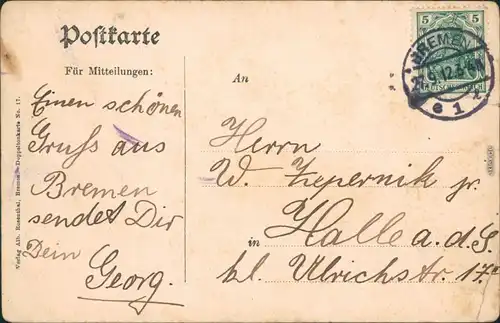 Postkarte
Für Mitteilungen:
An
Einen schönen
Gruss aus
Bremen
sendet Dir
Dein
Georg.
Herrn
W. Zepernik jr.
in Halle a. d. S.
kl. Ulrichstr. 17.
Verlag Alb. Rosenthal, Bremen - Doppeltonkarte No. 17.
5 5
DEUTSCHES REICH
BREMEN
27.9.12.
* e 1 z